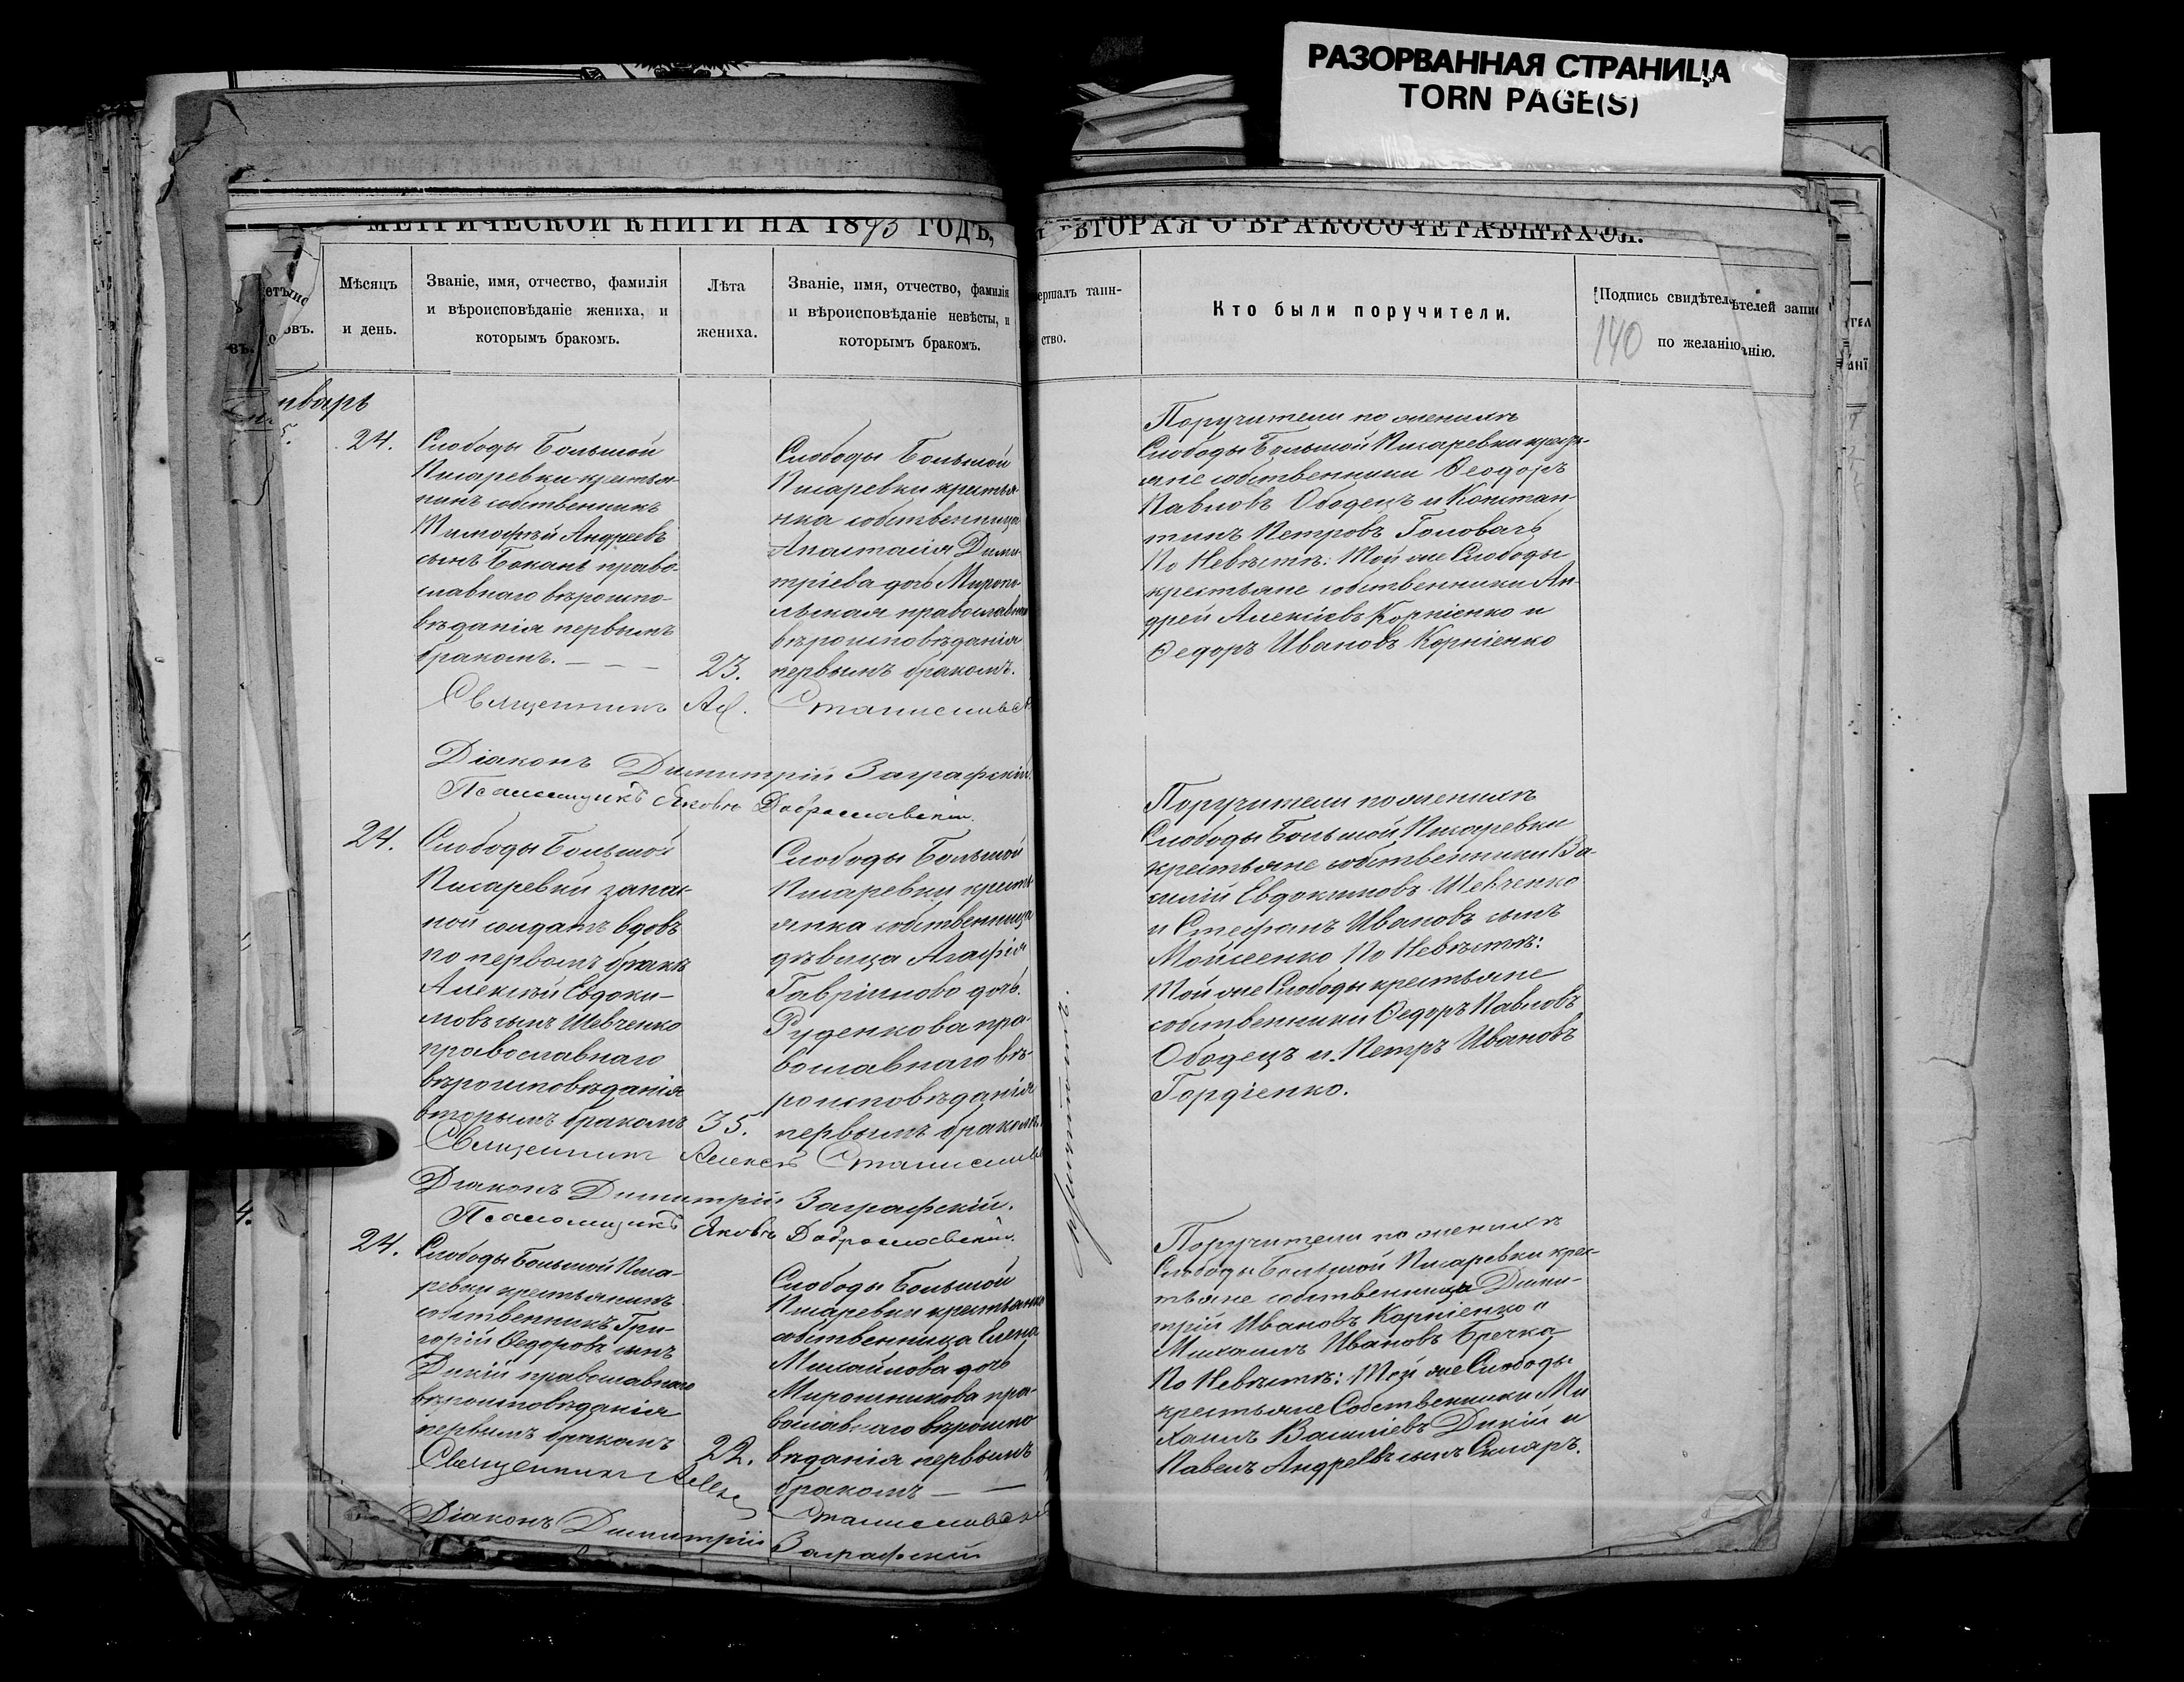 РАЗОРВАННАЯ СТРАНИЦА
TORN PAGE(S)
МЕТРИЧЕСКОЙ КНИГИ НА 1893 ГОДЪ,
ВТОРАЯ О БРАКОСОЧЕТАВШИХСЯ.
Мѣсяцъ
и день.
Званіе, имя, отчество, фамилія
и вѣроисповѣданіе жениха, и
которымъ бракомъ.
Лѣта
жениха.
Званіе, имя, отчество, фамилія
и вѣроисповѣданіе невѣсты, и
которымъ бракомъ.
ершалъ таин-
ство.
Кто были поручители.
Подпись свидѣтелей запи
по желанію.
140
нварь
24.
Слободы Большой
Писаревки крестья-
нинъ собственникъ
Тимофѣй Андреевъ
сынъ Бокань право-
славнаго вѣроиспо-
вѣданія первымъ
бракомъ. — — —
23.
Слободы Большой
Писаревки крестья-
нка собственница
Анастасія Дими-
тріева дочь Миропо-
льская православн
вѣроисповѣданія
первымъ бракомъ.
Поручители по женихѣ
Слободы Большой Писаревки кресть-
яне собственники Ѳеодоръ
Павловъ Ободецъ и Констан-
тинъ Петровъ Головачь
По Невѣстѣ: Той же Слободы
крестьяне собственники Ан-
дрей Алексіевъ Корніенко и
Ѳедоръ Ивановъ Корніенко
Священникъ Ал. Станиславск
Діаконъ Димитрій Заграфскій.
Псаломщикъ Яковъ Доброславскій.
24.
Слободы Большой
Писаревки запас-
ной солдатъ вдовъ
по первомъ бракѣ
Алексѣй Евдоки-
мовъ сынъ Шевченко
православнаго
вѣроисповѣданія
вторымъ бракомъ
35.
Слободы Большой
Писаревки кресть-
янка собственница
дѣвица Агафія
Гавріилова дочь
Руденкова пра-
вославнаго вѣ-
роисповѣданія
первымъ бракомъ.
Поручители по женихѣ
Слободы Большой Писаревки
крестьяне собственники Ва-
силій Евдокимовъ Шевченко
и Стефанъ Ивановъ сынъ
Мойсеенко По Невѣстѣ:
Той же Слободы крестьяне
собственники Ѳедоръ Павловъ
Ободецъ и Петръ Ивановъ
Гордіенко.
Священникъ Алексѣ Станиславс
Діаконъ Димитрій Заграфскій.
Псаломщикъ Яковъ Доброславскій.
24.
Слободы Большой Писа-
ревки крестьянинъ
собственникъ Гри-
горій Ѳедоровъ сынъ
Дикій православнаго
вѣроисповѣданія
первымъ бракомъ
22.
Слободы Большой
Писаревки крестьянка
собственница Елена
Михайлова дочь
Мирошникова пра-
вославнаго вѣроиспо
вѣданія первымъ
бракомъ — —
Поручители по женихѣ
Слободы Большой Писаревки крес-
тьяне собственники Дими-
трій Ивановъ Корніенко и
Михаилъ Ивановъ Бречка
По Невѣстѣ: Той же Слободы
крестьяне Собственники Ми
хаилъ Василіевъ Дикій и
Павелъ Андреевъ сынъ Скляръ.
Священникъ Алекс Станиславск
Діаконъ Димитрій Заграфскій